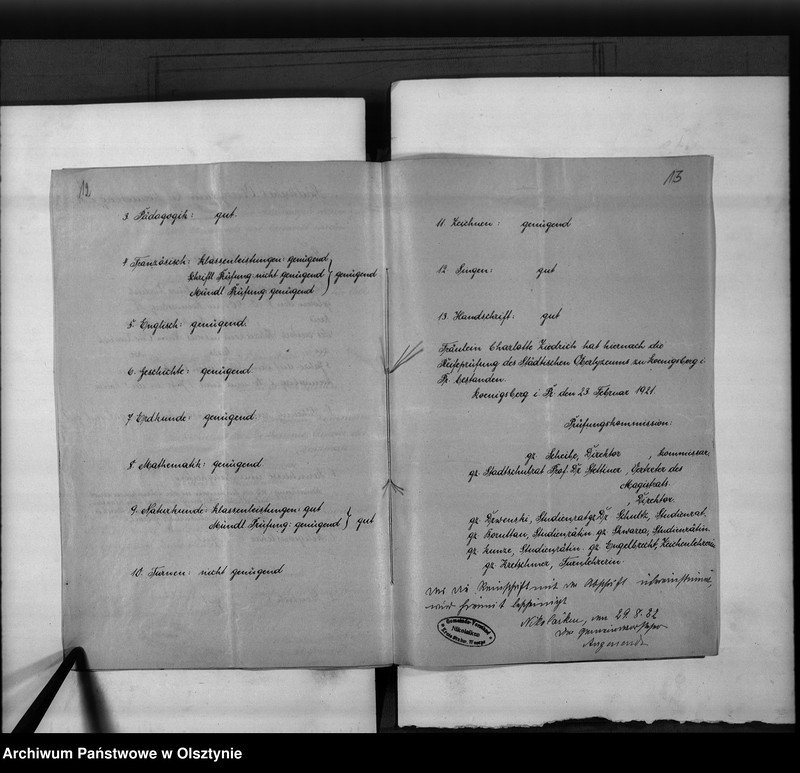 12
3 Pädagogik: gut.
4 Französisch: Klassenleistungen: genügend
Schriftl Prüfung: nicht genügend } genügend
Mündl Prüfung genügend
5. Englisch: genügend.
6. Geschichte: genügend
7 Erdkunde: genügend.
8. Mathematik: genügend
9. Naturkunde: Klassenleistungen: gut
Mündl Prüfung: genügend } gut
10. Turnen: nicht genügend
13
11. Zeichnen: genügend
12 Singen: gut
13. Handschrift: gut
Fräulein Charlotte Ziedrich hat hiernach die
Reifeprüfung des Städtischen Oberlyzeums zu Koenigsberg i.
Pr. bestanden.
Koenigsberg i Pr. den 23. Februar 1921.
Prüfungskommission:
gz Scheibe, Direktor, Kommissar.
gz. Stadtschulrat Prof. Dr. Stettiner, Vertreter des
Magistrats.
, Direktor.
gz Drwenski, Studienrat gz Dr Schultz, Studienrat.
gz Boruttau, Studienrätin gz. Skwarra, Studienrätin.
gz Kunze, Studienrätin. gz Engelbrecht, Zeichenlehrerin
gz Kretschmer, Turnlehrerin.
Das die Reinschrift mit der Abschrift übereinstimmt,
wird hiermit bescheinigt
Nikolaiken, den 29. 8. 32
Der Gemeindevorsteher
Gemeinde-Vorstand
Nikolaiken
Archiwum Państwowe w Olsztynie